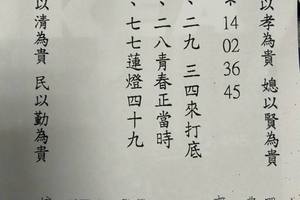 以孝為貴 媳以賢為貴
14 02 36 45
、二九 三四來打底
、二八青春正當時
、七七蓮燈四十九
以清為貴 民以勤為貴